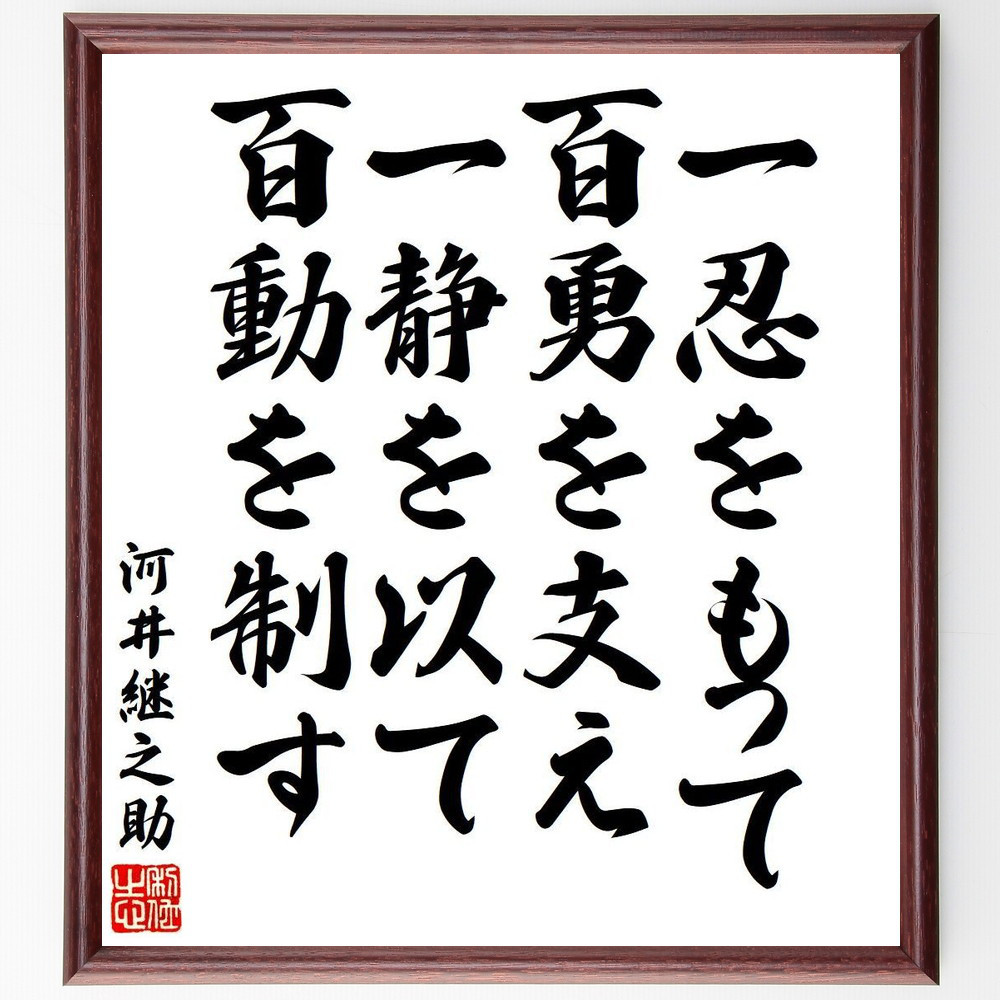 一忍をもって
百勇を支え
一静を以て
百動を制す
河井継之助